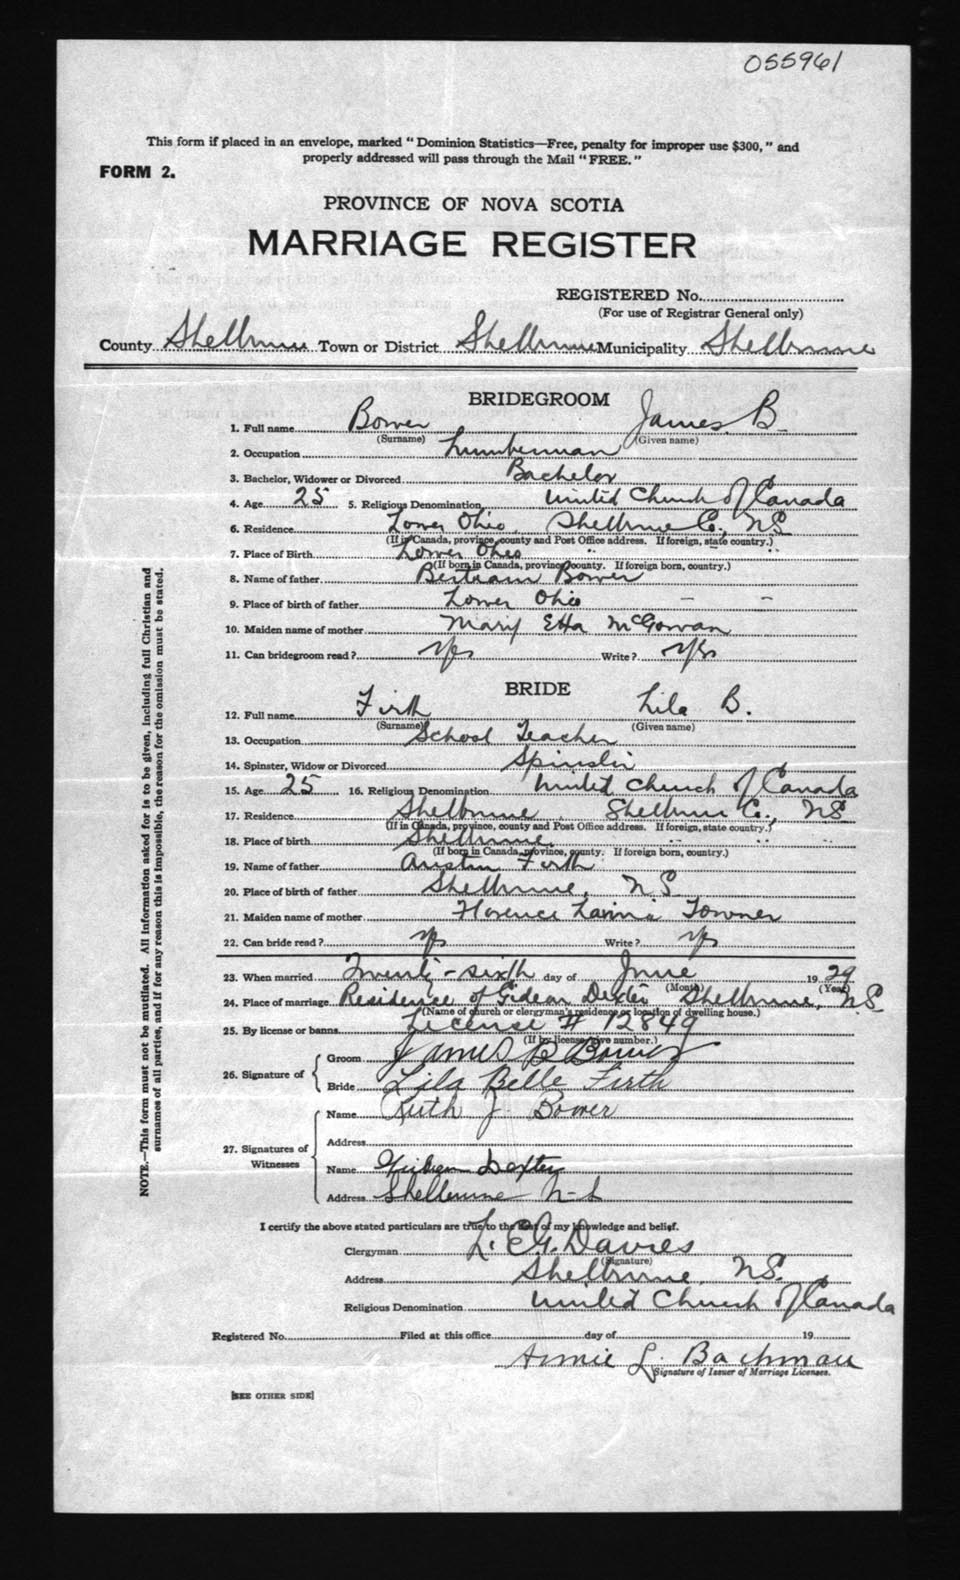 055961
This form if placed in an envelope, marked "Dominion Statistics—Free, penalty for improper use $300," and
properly addressed will pass through the Mail "FREE."
FORM 2.
PROVINCE OF NOVA SCOTIA
MARRIAGE REGISTER
REGISTERED No.
(For use of Registrar General only)
County Shelburne Town or District Shelburne Municipality Shelburne
BRIDEGROOM
1. Full name Bower James B.
(Surname) (Given name)
2. Occupation Lumberman
3. Bachelor, Widower or Divorced Bachelor
4. Age 25 5. Religious Denomination United Church of Canada
6. Residence Lower Ohio, Shelburne Co., NS
(If in Canada, province, county and Post Office address. If foreign, state country.)
7. Place of Birth Lower Ohio " " "
(If born in Canada, province, county. If foreign born, country.)
8. Name of father Bertram Bower
9. Place of birth of father Lower Ohio - -
10. Maiden name of mother Mary Etta McGowan
11. Can bridegroom read? Yes Write? Yes
BRIDE
12. Full name Firth Lila B.
(Surname) (Given name)
13. Occupation School Teacher
14. Spinster, Widow or Divorced Spinster
15. Age 25 16. Religious Denomination United Church of Canada
17. Residence Shelburne, Shelburne Co., NS
(If in Canada, province, county and Post Office address. If foreign, state country.)
18. Place of birth Shelburne, " " "
(If born in Canada, province, county. If foreign born, country.)
19. Name of father Austin Firth
20. Place of birth of father Shelburne, NS
21. Maiden name of mother Florence Lavinia Towner
22. Can bride read? Yes Write? Yes
23. When married Twenty-sixth day of June 1929
(Month) (Year)
24. Place of marriage Residence of Gideon Dexter Shelburne, N.S
(Name of church or clergyman's residence or location of dwelling house.)
25. By license or banns License # 12849
(If by license, give number.)
26. Signature of Groom James B Bower
Bride Lila Belle Firth
27. Signatures of Witnesses
Name Ruth J. Bower
Address
Name Dexter
Address Shelburne N-S
I certify the above stated particulars are true to the best of my knowledge and belief.
Clergyman L. Davies
(Signature)
Address Shelburne, N.S.
Religious Denomination United Church of Canada
Registered No. Filed at this office day of 19
Annie L. Bachman
Signature of Issuer of Marriage Licenses.
[SEE OTHER SIDE]
NOTE.—This form must not be mutilated. All information asked for is to be given, including full Christian and
surnames of all parties, and if for any reason this is impossible, the reason for the omission must be stated.